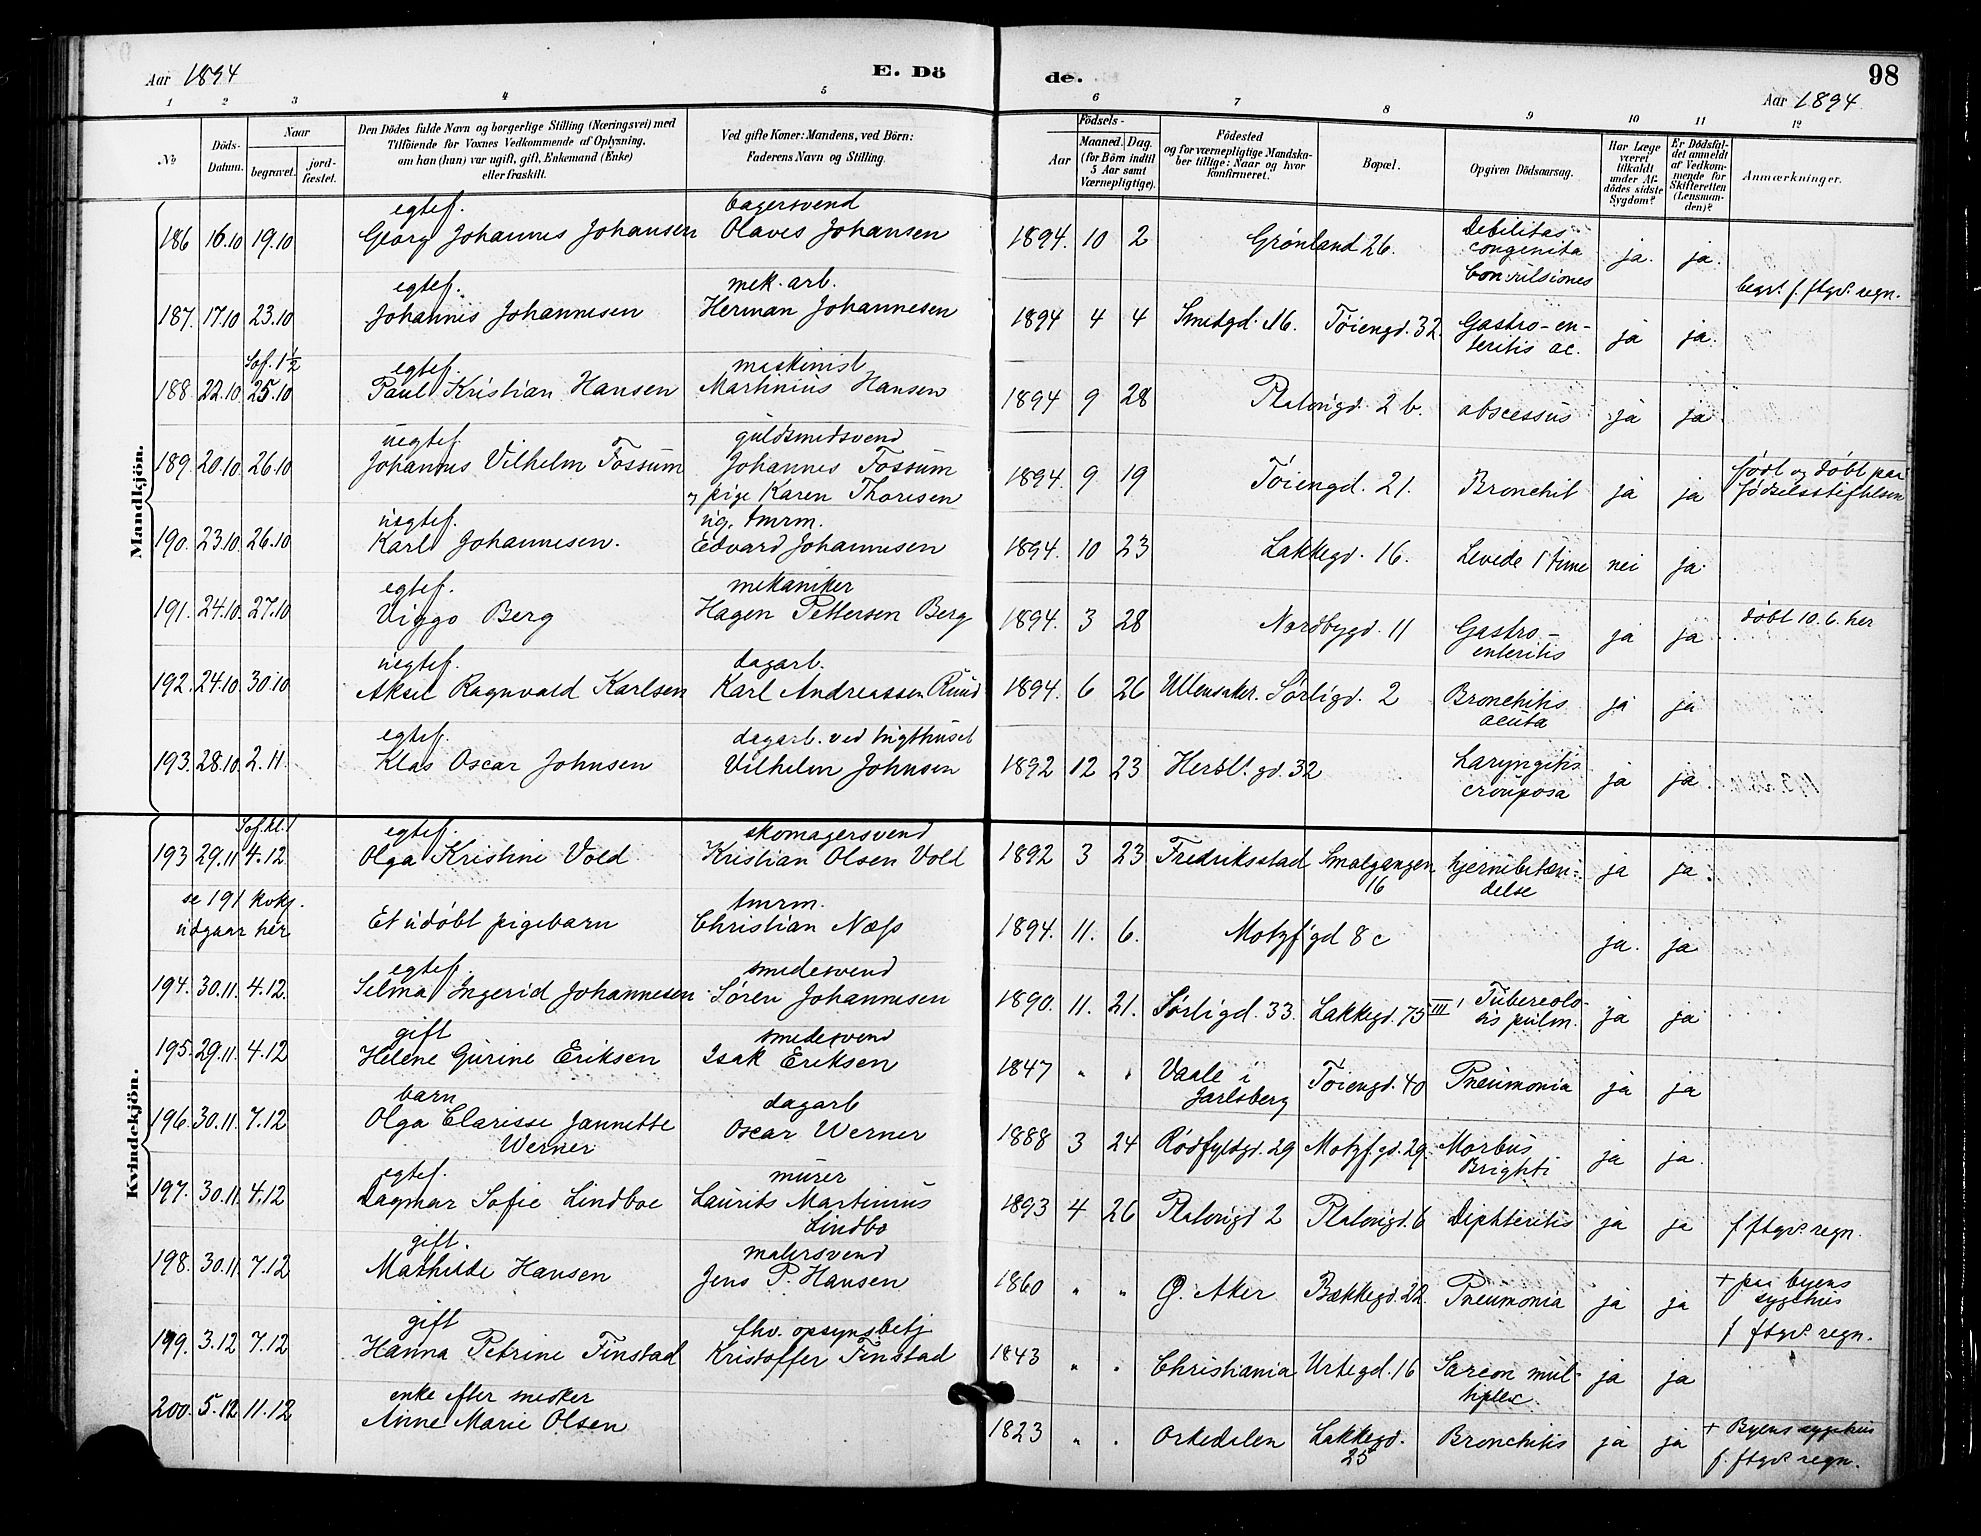 Aar 1894
E. Dö
de.
98
Aar 1894
1 2 3 4 5 6 7 8 9 10 11 12
No
Döds-Datum.
Naar
begravet.
jord-fæstet.
Den Dödes fulde Navn og borgerlige Stilling (Næringsvei) med
Tilföiende for Voxnes Vedkommende af Oplysning,
om han (hun) var ugift, gift, Enkemand (Enke)
eller fraskilt.
Ved gifte Koner: Mandens, ved Börn:
Faderens Navn og Stilling.
Födsels-
Aar
Maaned. Dag.
(for Börn indtil
5 Aar samt
Værnepligtige).
Födested
og for værnepligtige Mandska-
ber tillige: Naar og hvor
konfirmeret.
Bopæl.
Opgiven Dödsaarsag.
Har Læge
været
tilkaldt
under Af-
dödes sidste
Sygdom?
Er Dödsfal-
det anmeldt
af Vedkom-
mende for
Skifteretten
(Lensman-
den)?
Anmærkninger.
Mandkjön.
egtef. bagersvend
186 16.10 19.10 Georg Johannes Johansen Olaves Johansen 1894. 10 2 Grønland 26. Debilitas congenita Convulsiones ja. ja.
egtef. mek. arb.
187. 17.10 23.10 Johannes Johannesen Herman Johannesen 1894 4 4 Smedgd. 16. Tøiengd. 32 Gastro-en-teritis ac. ja ja. begr. f. ftgv. regn.
Sof. 1½ egtef. maskinist
188 22.10 25.10 Paul Kristian Hansen Martinius Hansen 1894 9 28 Platougd. 2 b. abscessus ja ja
uegtef. guldsmedsvend
189. 20.10 26.10 Johannes Vilhelm Fossum Johannes Fossum og pige Karen Thoresen 1894. 9 19 Tøiengd. 21. Bronchit ja ja født og døbt paa fødselsstiftelsen
uegtef. ug. tmrm.
190. 23.10 26.10 Karl Johannesen. Edvard Johannesen 1894. 10 23 Lakkegd. 16. Levede 1 time nei ja.
egtef. mekaniker
191. 24.10 27.10 Viggo Berg Hagen Pettersen Berg 1894. 3 28 Nordbygd. 11 Gastro-enteritis ja ja døbt 10.6. her
uegtef. dagarb.
192. 24.10 30.10 Aksel Ragnvald Karlsen Karl Andreassen Ruud 1894. 6 26 Ullensaker. Sörligd. 2 Bronchitis acuta ja ja
egtef. dagarb. ved tugthuset
193. 28.10 2.11. Klas Oscar Johnsen Vilhelm Johnsen 1892 12 23 Hersl. gd. 32 Laryngitis crouposa ja ja.
Kvindekjön.
Sof. kl. 1 egtef. skomagersvend
193 29.11 4.12 Olga Kristine Vold Kristian Olsen Vold 1892 3 23 Fredriksstad Smalgangen 16 hjernebetæn-delse ja ja.
se 191 kvkj. udgaar her tmrm.
Et udøbt pigebarn Christian Næss 1894. 11. 6. Motzf.gd 8 c ja. ja
egtef. smedesvend
194. 30.11. 4.12. Selma Ingerid Johannesen Søren Johannesen 1890. 11. 21. Sørligd. 33. Lakkegd. 75 III Tuberculo-sis pulm. ja ja
gift smedesvend
195. 29.11. 4.12 Helene Gurine Eriksen Isak Eriksen 1847 " " Vaale i Jarlsberg Tøiengd. 40 Pneumonia ja ja
barn dagarb
196. 30.11. 7.12 Olga Clarisse Jannette Werner Oscar Werner 1888 3 24 Rødfyldgd. 29 Motzf.gd. 29. Morbus Brighti ja ja.
egtef. murer
197. 30.11 4.12 Dagmar Sofie Lindboe Laurits Martinius Lindbo 1893 4 26 Platougd 2 Platougd. 6 Diphteritis ja ja f ftgv. regn.
gift. malersvend
198. 30.11 7.12 Mathilde Hansen Jens P. Hansen 1860 " " Ø. Aker Bækkegd. 22. Pneumonia ja ja + paa byens sygehus f ftgv. regn.
gift fhv. opsynsbetj
199. 3.12 7.12 Hanna Petrine Finstad Kristoffer Finstad 1843 " " Christiania Urtegd. 16 Sarcom mul-tiplex. ja ja
enke efter
200. 5.12 11.12 Anne Marie Olsen 1823 " " Orkedalen Lakkegd. 25 Bronchitis ja ja + Byens sygehus f. ftgv. regn.